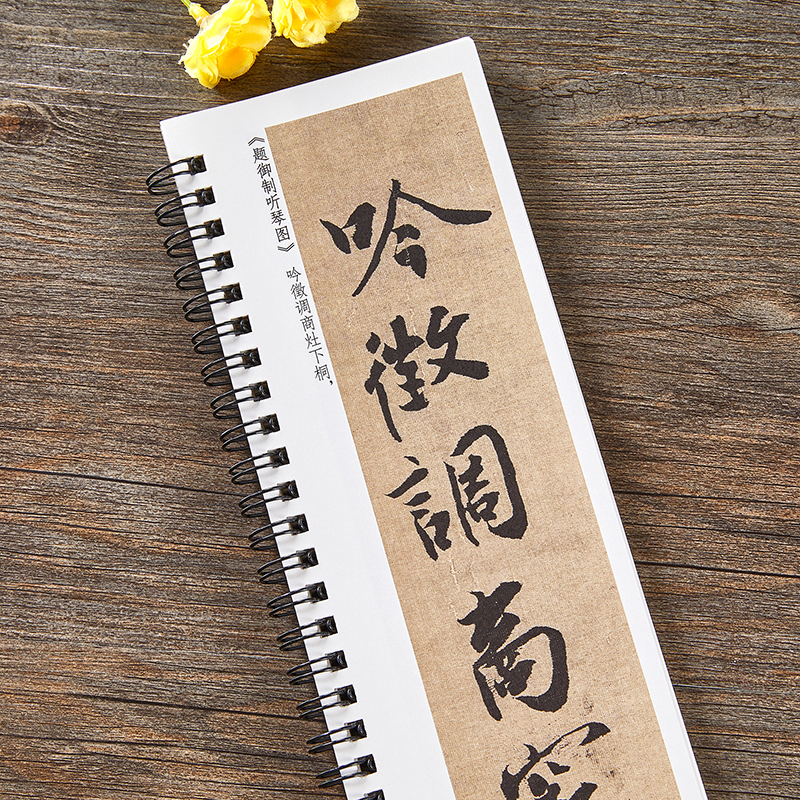 《题御制听琴图》 吟徵调商灶下桐,
吟徵調商